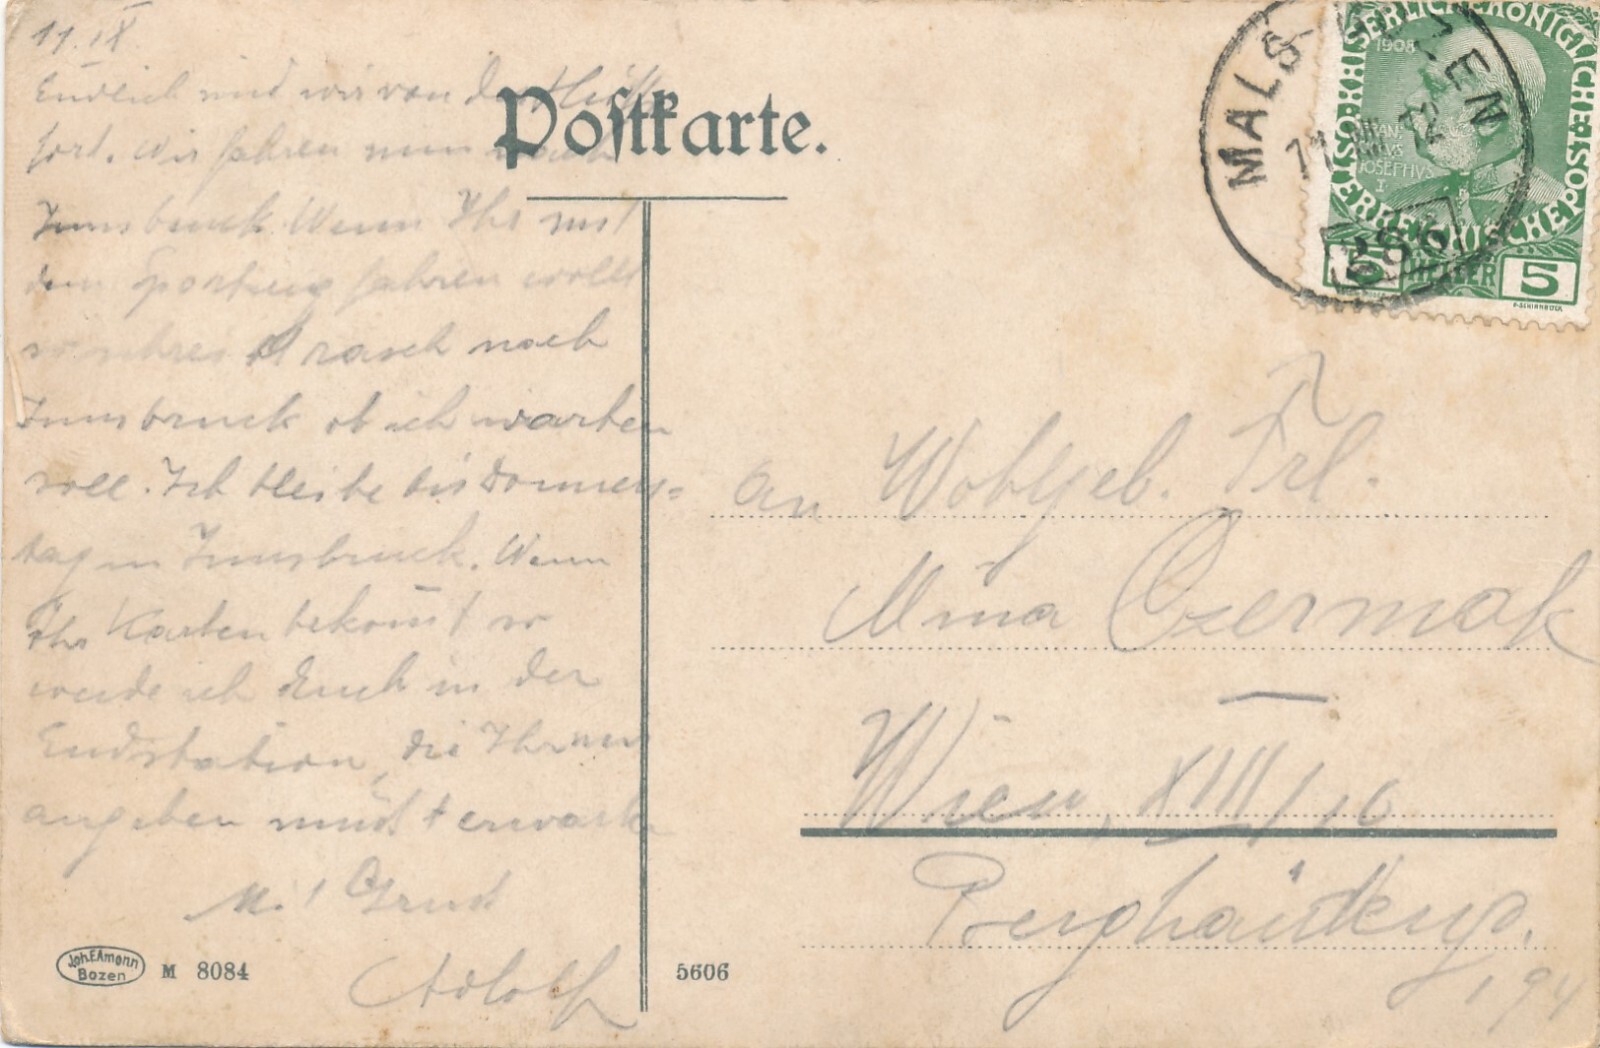 11. IX
Endlich sind wir von der Hütte
fort. Wir fahren nun nach
Innsbruck. Wenn Ihr mit
dem Sportzug fahren wollt
so schreibt rasch nach
Innsbruck ob ich warten
soll. Ich bleibe bis Donners=
tag in Innsbruck. Wenn
Ihr Karten bekom̅t so
werde ich Euch in der
Endstation, die Ihr mir
angeben müsst erwarten
M. Gruß
Adolf
Postkarte.
MALS-BOZEN
11
12
286
KAISERLICHE KÖNIGLICHE
ÖSTERREICHISCHE POST
1908
FRANCISCVS
JOSEPHVS
I
5 HELLER 5
an Wohlgeb. Frl.
Mina Czermak
Wien, XVIII/10
194
Joh.F.Amonn
Bozen
M 8084
5606